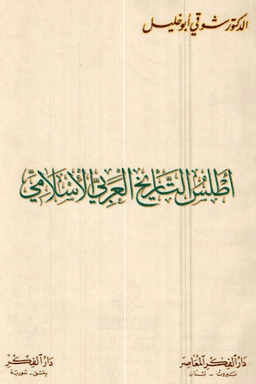 الدكتور شوقي أبو خليل
أطلس التاريخ العربي الإسلامي
دار الفكر المعاصر
بيروت - لبنان
دار الفكر
دمشق - سورية